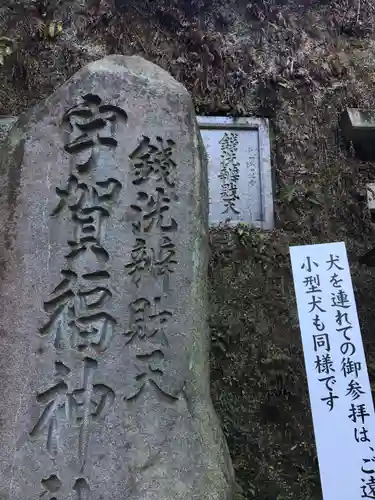 錢洗辨財天
宇賀福神社
錢洗辨財天
犬を連れての御参拝は、ご遠
小型犬も同様です